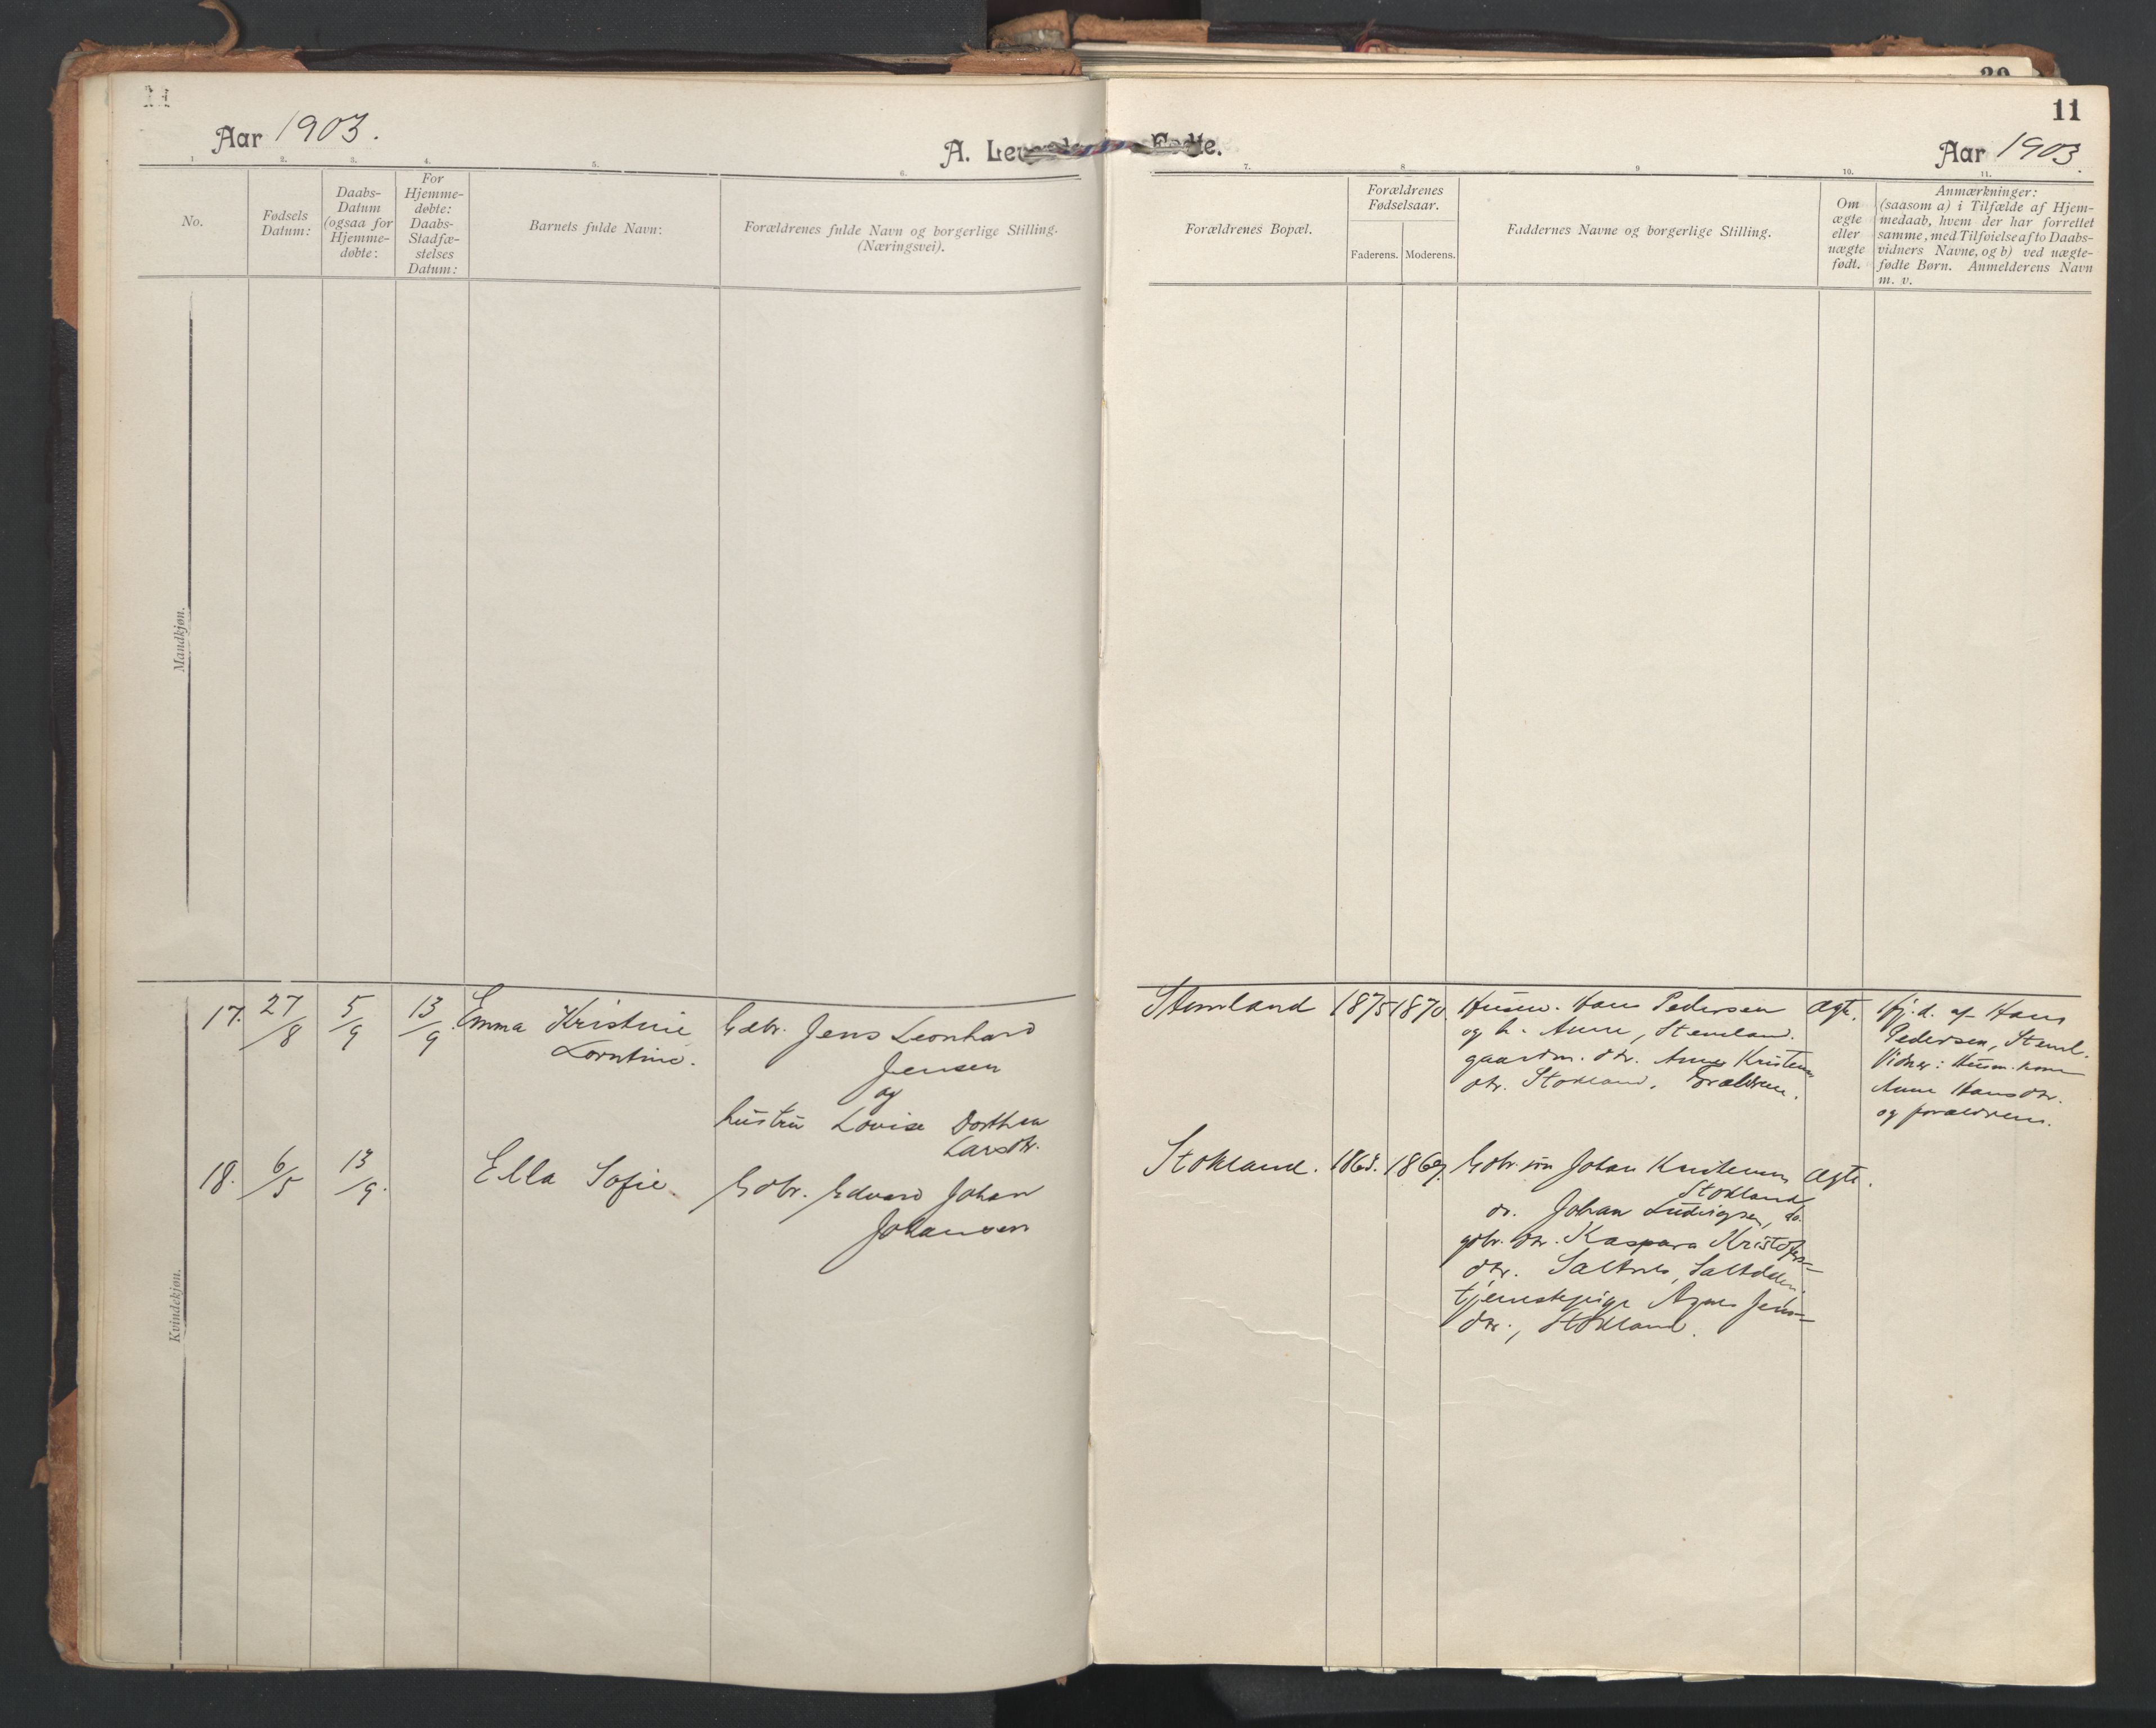 11
Aar 1903.
A. Lev Fødte.
Aar 1903.
1 2. 3. 4. 5. 6. 7. 8. 9 10. 11.
No.
Fødsels
Datum:
Daabs-
Datum
(ogsaa for
Hjemme-
døbte:
For
Hjemme-
døbte:
Daabs-
Stadfæ-
stelses
Datum:
Barnets fulde Navn:
Forældrenes fulde Navn og borgerlige Stilling.
(Næringsvei).
Forældrenes Bopæl.
Forældrenes
Fødselsaar.
Faderens. Moderens.
Faddernes Navne og borgerlige Stilling.
Om
ægte
eller
uægte
født.
Anmærkninger:
(saasom a) i Tilfælde af Hjem-
medaab, hvem der har forrettet
samme, med Tilføielse af to Daabs-
vidners Navne, og b) ved uægte-
fødte Børn. Anmelderens Navn
m. v.
Mandkjøn.
Kvindekjøn.
17. 27/8 5/9 13/9
Emma Kristine
Lorntine.
Gdbr. Jens Leonhard
Jensen
og
hustru Lovise Dorthea
Larsdtr.
Stemland 1875 1870.
Husm. Hans Pedersen
og h. Anne, Stemland.
gaardm. dtr. Anne Kristens
dtr. Stokland. Forældrene.
Ægte.
Hj. d. af Hans
Pedersen, Steml.
Vidner: Husm. kone
Anne Hansdtr.
og forældrene.
18. 6/5 13/9.
Ella Sofie.
Gdbr. Edvard Johan
Johansen
Stokland. 1869.
Gdbr. søn Johan Kristensen
Stokland
do. Johan Ludvigsen, do.
gdbr. dtr. Kaspara Kristofers-
dtr. Saltnes, Saltdalen.
tjenestepige Agnes Jens-
dtr., Stokland.
Ægte.